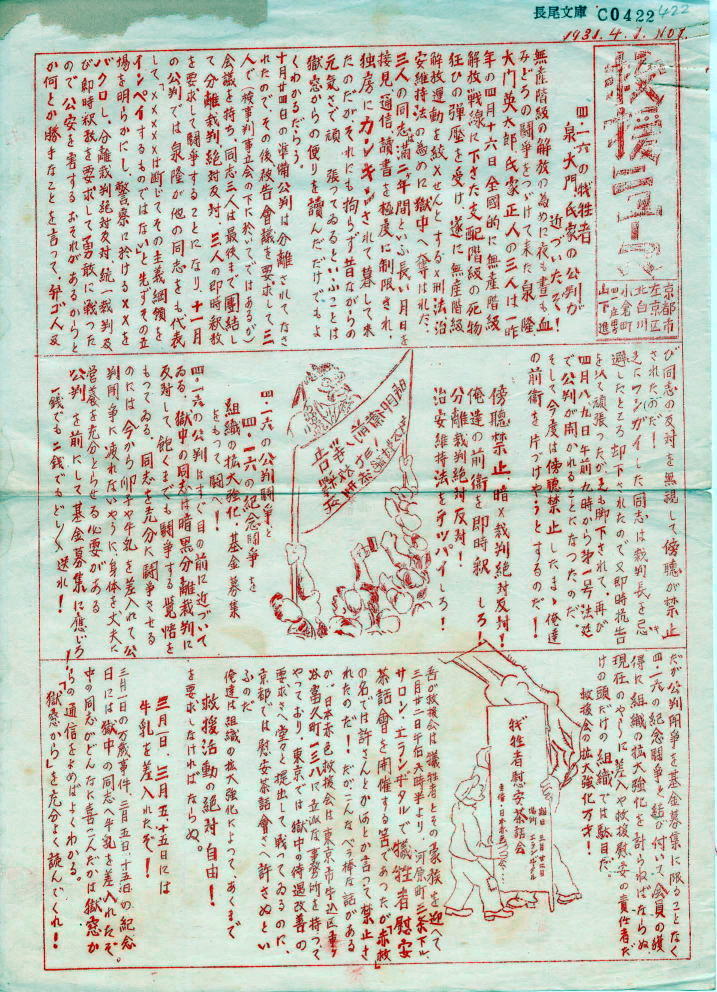 長尾文庫 C0422
422
1931.4.1. NO1.
救援ニュース
京都市
左京区
北白川
小倉町
山下進
四・一六の犠牲者
泉、大門氏家の公判が
近づいたぞ!
無産階級の解放の為めに夜も昼も血
みどろの闘争をつづけて来た泉隆、
大門英太郎氏家正人の三人は一昨
年の四月十六日全国的に無産階級
解放戦線に下された支配階級の死物
狂ひの弾圧を受け、遂に無産階級
解放運動を絞×せんとする×刑法治
安維持法の為めに獄中へ奪はれた。
三人の同志は満二ヶ年間といふ長い月日を
接見、通信、読書を極度に制限され、
独房にカンキンされて暮して来
たのだがそれにも拘らず昔ながらの
元気さで頑張ってゐるといふことは
獄窓からの便りを読んだだけでもよ
くわかるだらう。
十月廿四日の準備公判は分離でなさ
れたのでその後被告会議を要求して、三
人で(検事判事立会の下に於いてではあるが)
会議を持ち、同志三人は最後まで団結し
て分離裁判絶対反対、三人の即時釈放
を要求して闘争することになり、十一月
の公判では泉隆が他の同志をも代表
して、「××××は断じてその主義綱領を
インペイするものではない」と先ずその立
場を明らかにし、警察に於ける×××を
バクロし、分離裁判絶対反対統一裁判及
び即時釈放を要求して勇敢に戦った
ので公安を害するおそれがあるからと
か何とか勝手なことを言って、弁ゴ人及
び同志の反対を無視して傍聴が禁止
されたのだ!
之にフンガイした同志は裁判長を忌
避したところ却下されたので又即時抗告
を以て頑張ったがそれも却下されて、再が
四月八、九日午前九時から第一号法廷
で公判が開かれることになったのだ。
そして今度は傍聴禁止したまゝ俺達
の前衛を片づけやうとするのだ!
傍聴禁止の暗×裁判絶対反対!
俺達の前衛を即時釈 しろ!
分離裁判絶対反対!
治安維持法をテッパイしろ!
四・一六の公判闘争と
四・一六の紀念闘争を
組織の拡大強化・基金募集
をもって闘へ!
四・一六の公判はすぐ目の前に近づいて
ゐる。獄中の同志は暗黒分離裁判に
反対して、飽くまでも闘争する覚悟を
もってゐる。同志を充分に闘争させる
のには今から卵や牛乳を差入れて公
判闘争に疲れないやうに、身体を丈夫に
営養を充分とらせる必要がある
公判を前にして基金募集に応じろ!
一銭でも二銭でもどしどし送れ!
だが公判闘争を基金募集に限ることなく
四・一六の紀念闘争と結び付いて、会員の獲
得に組織の拡大強化を計らねばならぬ、
現在のやうに差入や救援慰安の責任者だ
けの頭だけの組織では駄目だ。
救援会の拡大強化万才!
犠牲者慰安茶話会
期日 三月廿二日
場所 エランヴタル
吾が救援会は犠牲者とその家族を迎へて
三月廿二日午后六時半より、河原町三条下ル、
サロン・エランヴタルで犠牲者慰安
茶話会を開催する筈であったが「赤救
の名では許さん」とかほとか言って禁止さ
れたのだ!だがこんなべら棒な話がある
か、日本赤色救援会は東京市牛込区市ヶ
谷富久町一三八に立派な事務所を持って
やっており、東京では獄中の待遇改善の
要求さへ堂々と提出して戦ってゐるのに、
京都では慰安茶話会さへ許さぬとい
ふのだ
俺達は組織の拡大強化によって、あくまで
救援活動の絶対自由!
を要求しなければならぬ。
三月一日、三月五、十五日には
牛乳を差入れたぞ!
三月一日の万歳事件、三月五日、十五日の紀念
日には獄中の同志へ牛乳を差入れたぞ。
中の同志がどんなに喜こんだかは獄窓か
らの通信をよめばよくわかる。
「獄窓から」を充分よく読んでくれ!